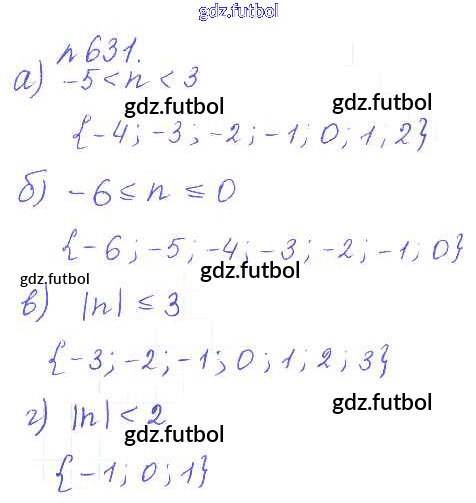 gdz.futbol
n 631.
а) -5 < n < 3
gdz.futbol
gdz.futbol
{-4; -3; -2; -1; 0; 1; 2}
б) -6 ≤ n ≤ 0
{-6; -5; -4; -3; -2; -1; 0}
gdz.futbol
gdz.futbol
в) |n| ≤ 3
{-3; -2; -1; 0; 1; 2; 3}
gdz.futbol
г) |n| < 2
gdz.futbol
{-1; 0; 1}